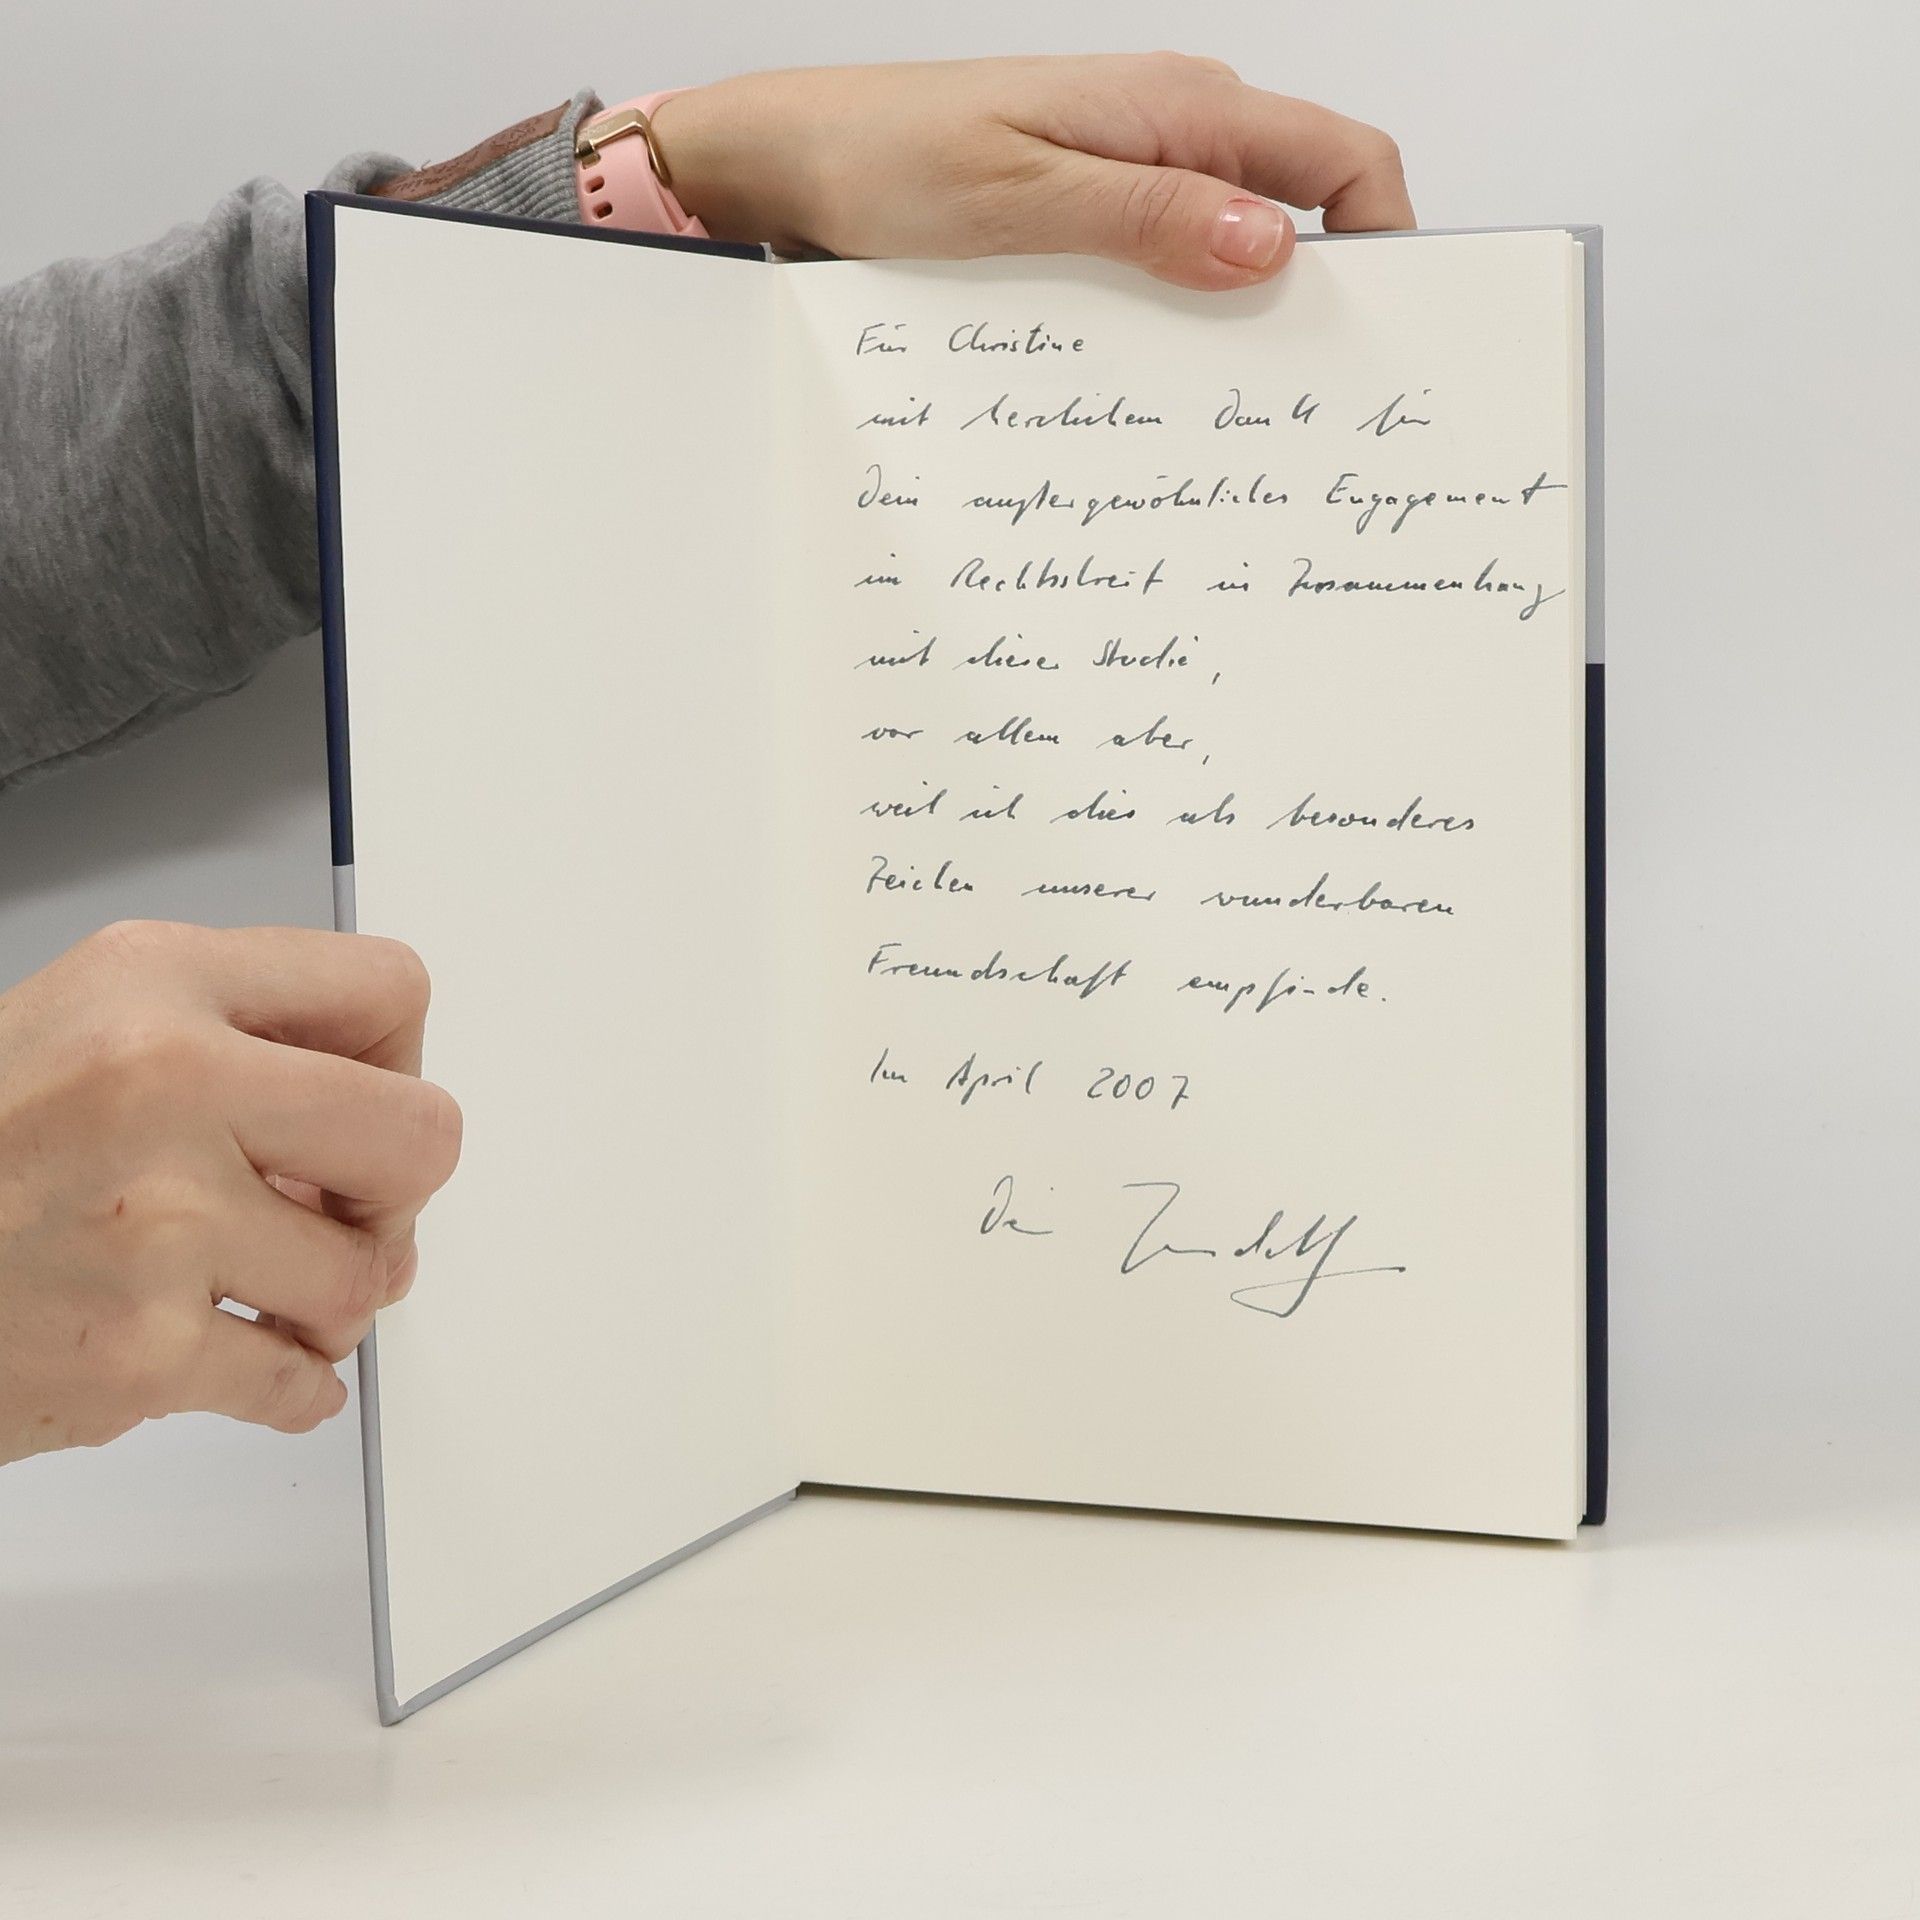 Für Christine
mit herzlichem Dank für
Dein außergewöhnliches Engagement
im Rechtsstreit im Zusammenhang
mit dieser Studie,
vor allem aber,
weil ich dies als besonderes
Zeichen unserer wunderbaren
Freundschaft empfinde.
Im April 2007
Dein